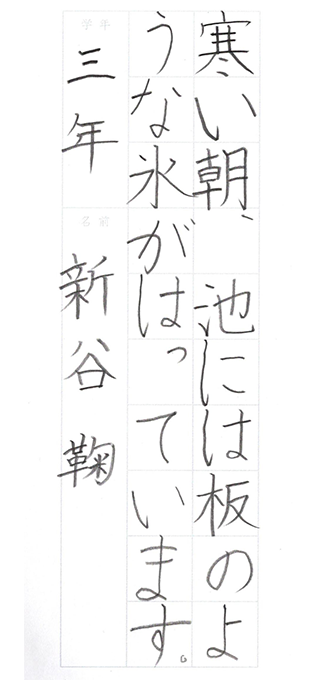 寒い朝、池には板のよ
うな氷がはっています。
学年 三年 名前 新谷 鞠